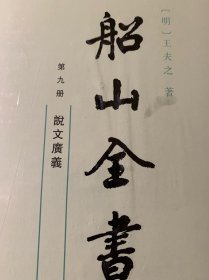 ［明］王夫之 著
船山全書
第九册
說文廣義